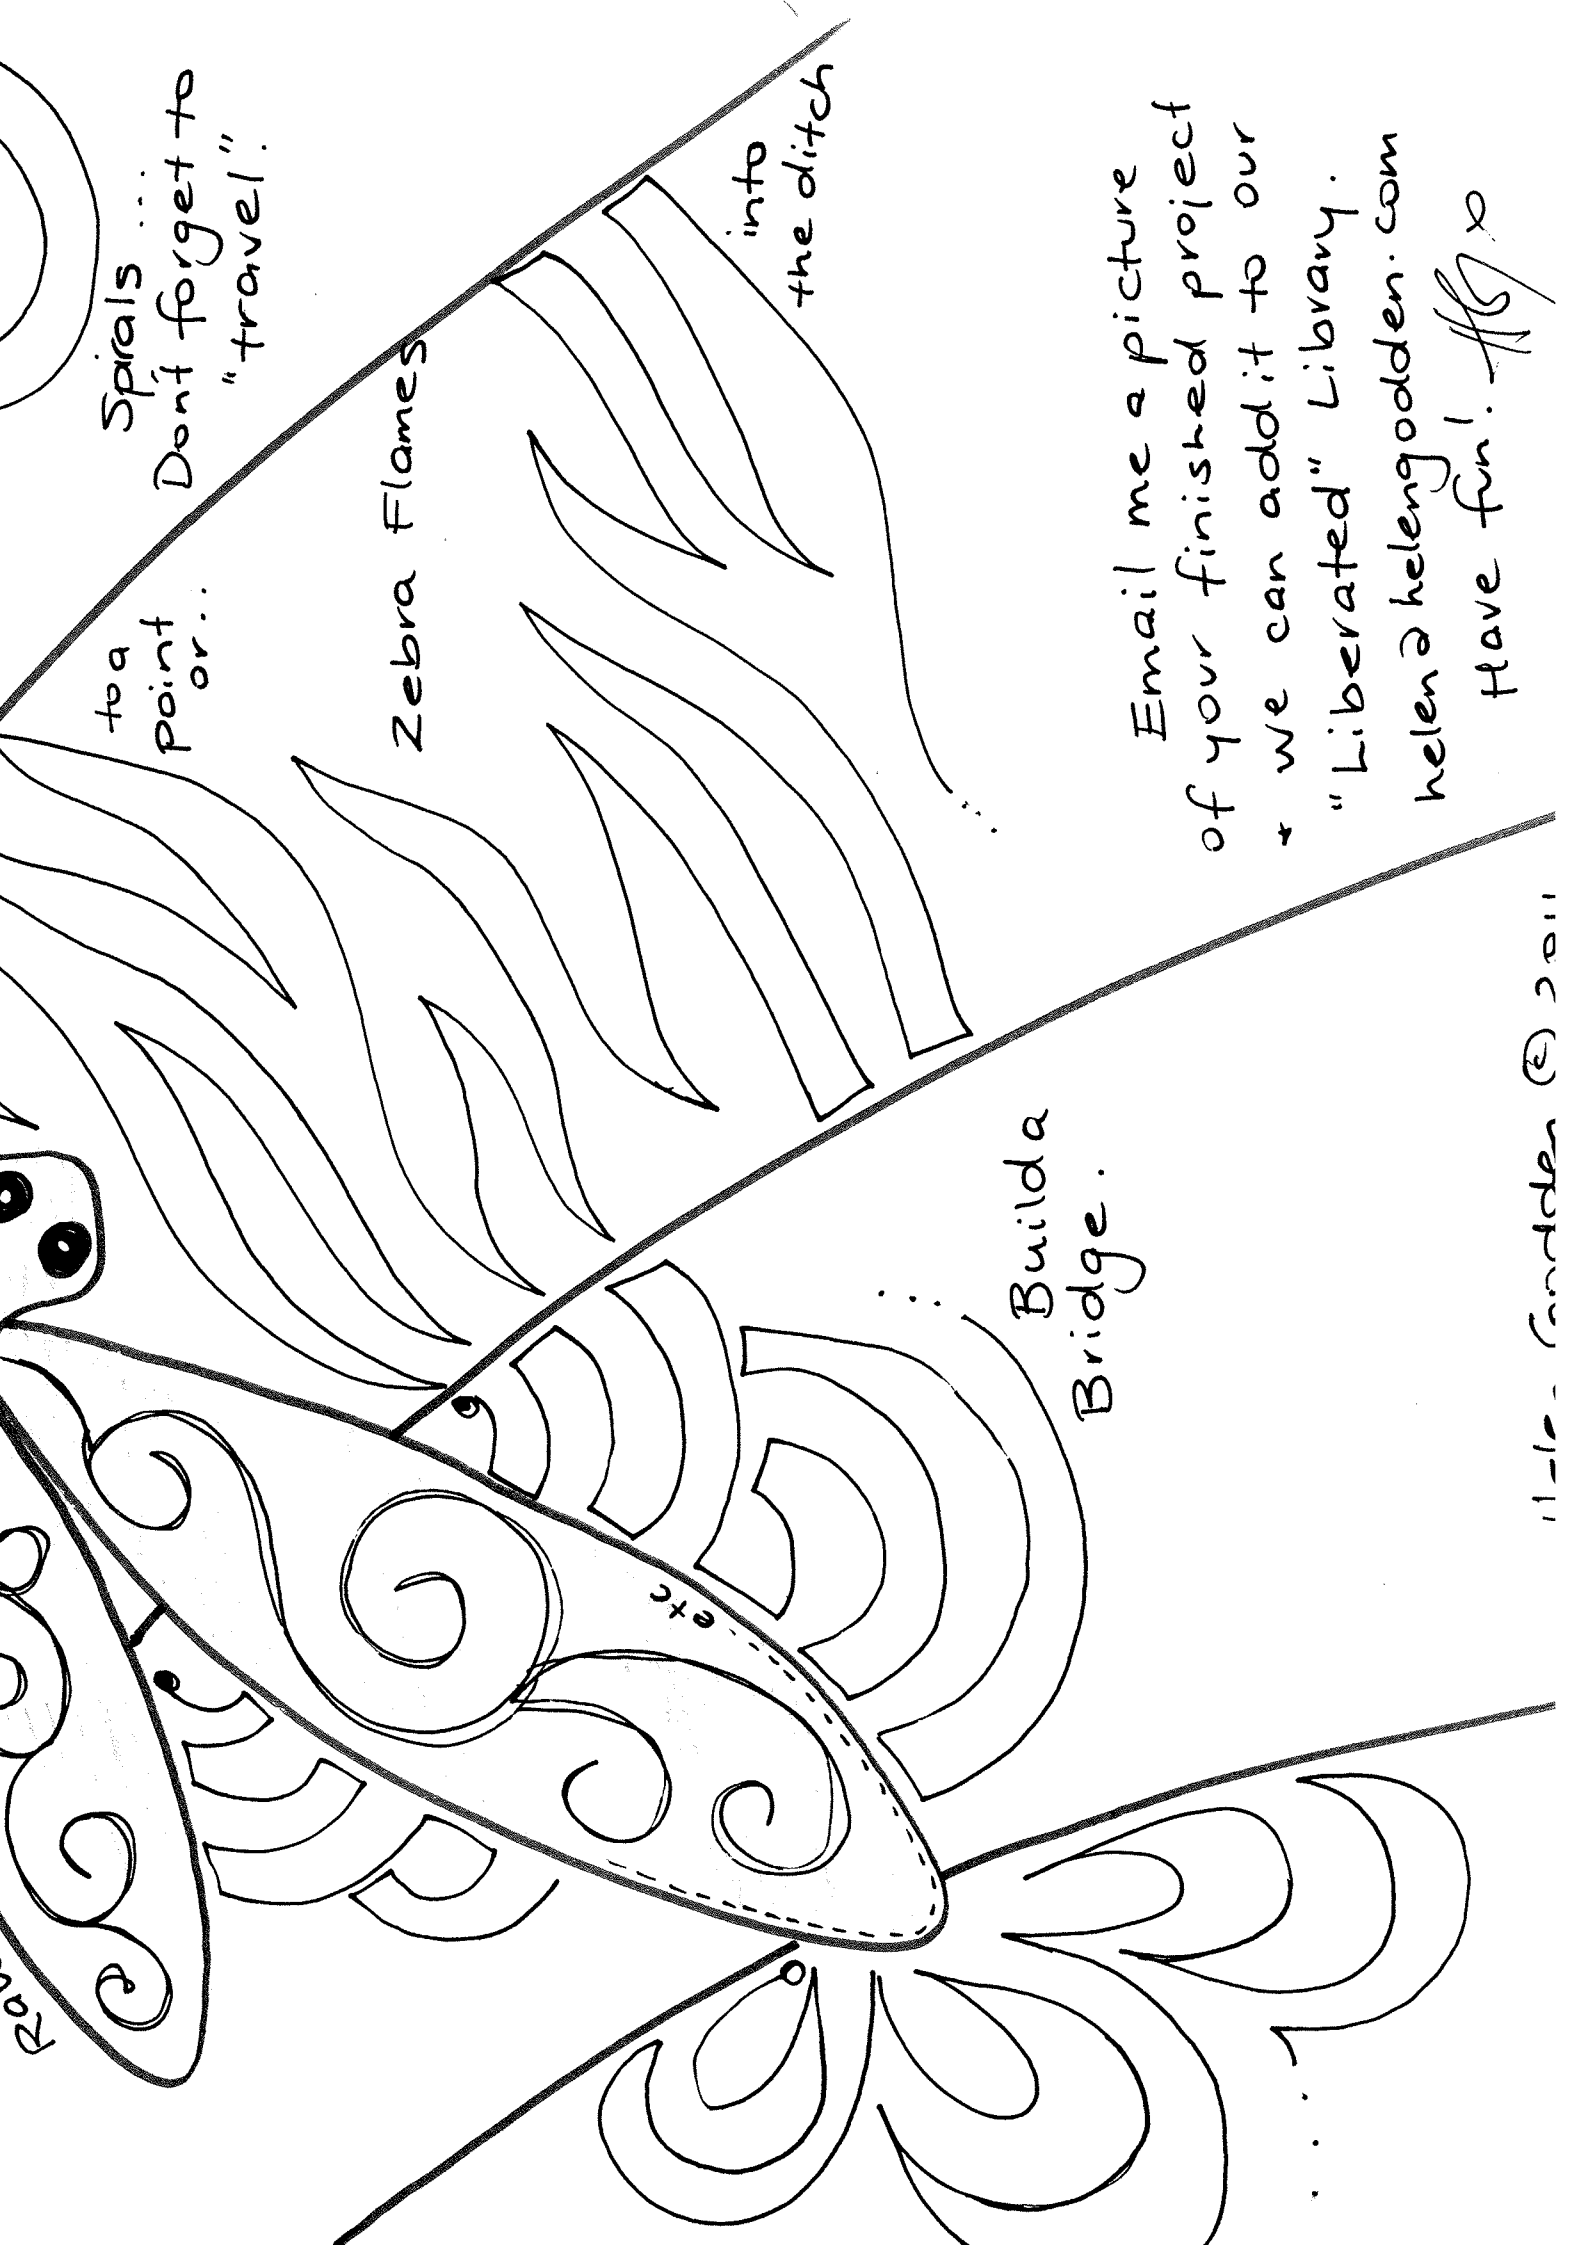 Spirals ...
Don't forget to
"travel".
to a
point
or...
Zebra Flames
into
the ditch
Email me a picture
of your finished project
* we can add it to our
"Liberated" Library.
helen@helengodden.com
Have fun!
x
Build a
Bridge.
etc
Godden © 2011